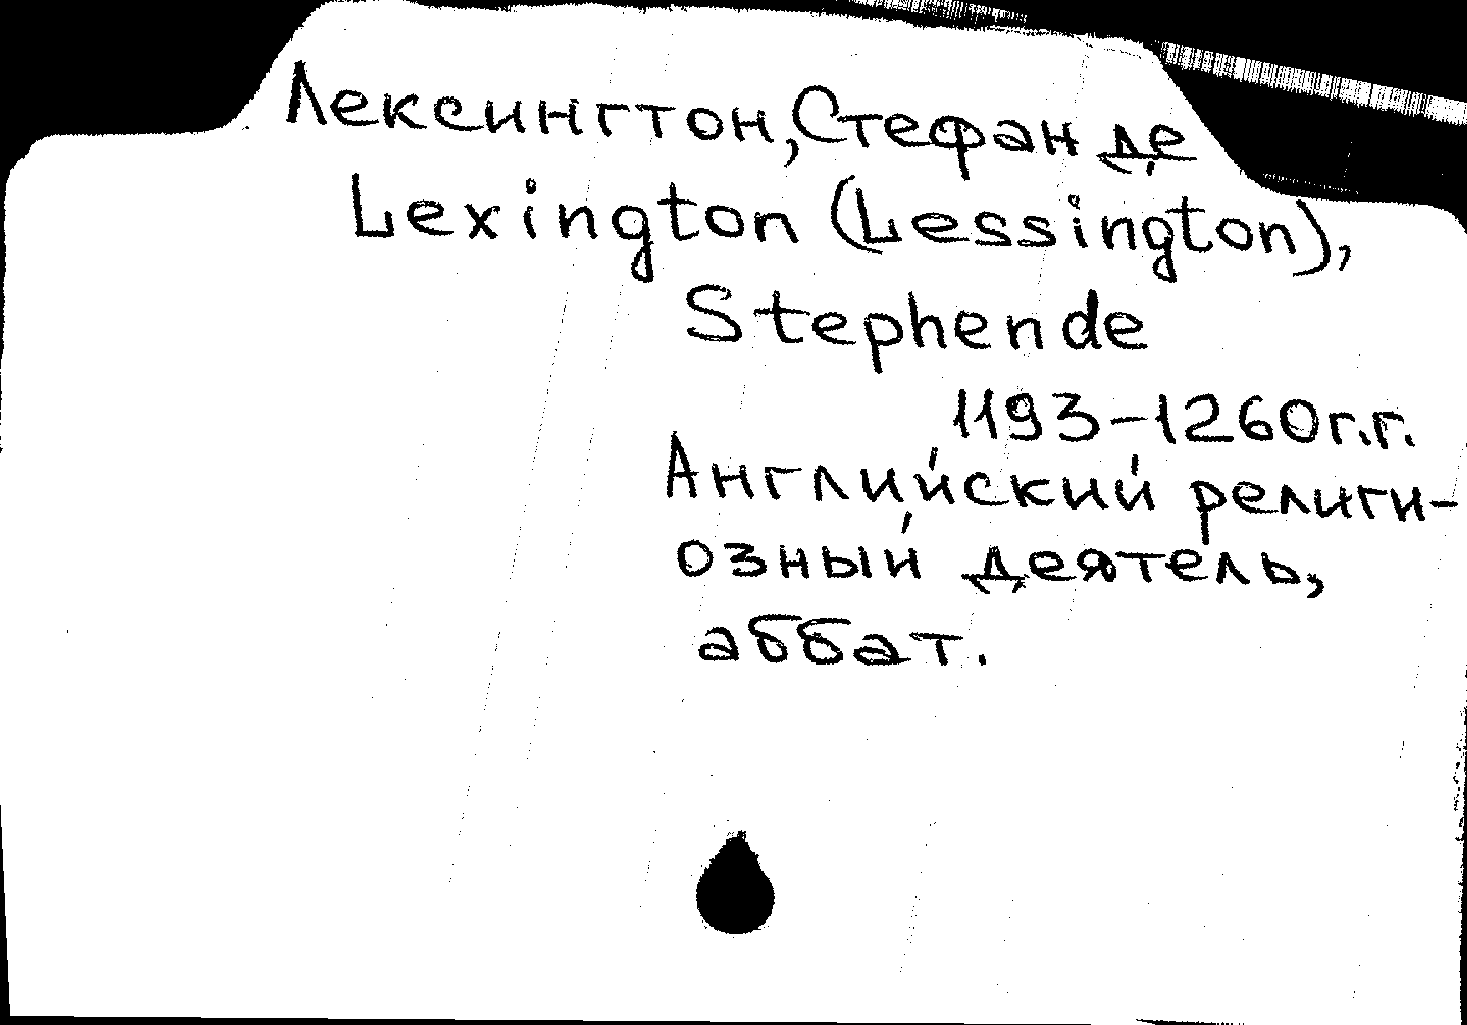 Лексингтон, Стефан де
Lexington (Lessington),
Stephen de
1193-1260 г.г.
Английский религи-
озный деятель,
аббат.